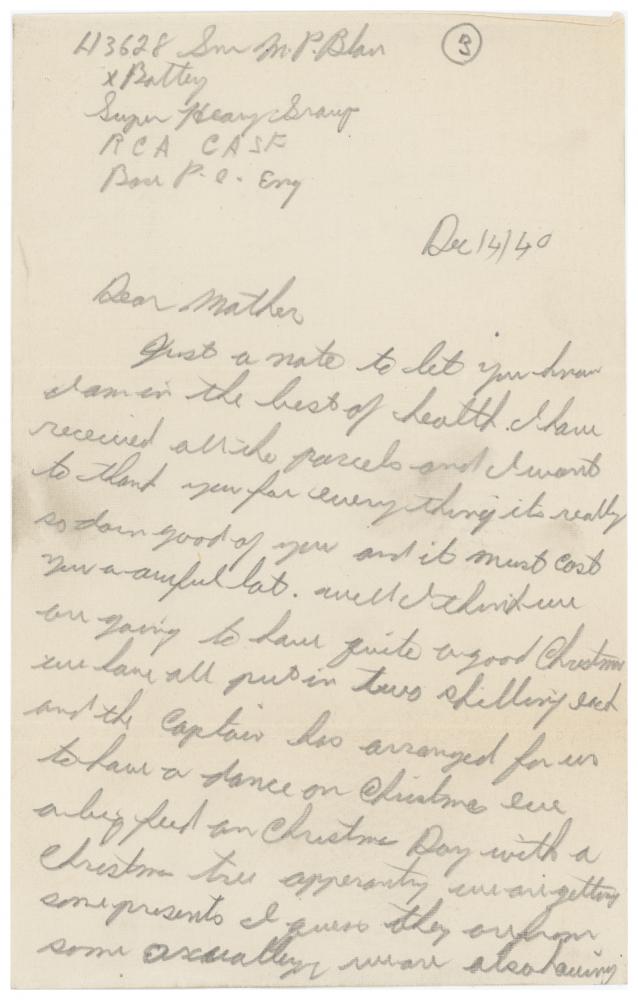 H3628 Snr M. P. Blair 3
x Battey
Super Heavy Group
RCA CASF
Base P.O. Eng
Dec 14/40
Dear Mother
Just a note to let you know
I am in the best of health. I have
received all the parcels and I want
to thank you for everything its really
so darn good of you and it must cost
you a awful lot. well I think we
are going to have quite a good Christmas
we have all put in two shilling each
and the Captain has arranged for us
to have a dance on Christmas eve
a big feed on Christmas Day with a
Christmas tree apperantly we are getting
some presents I guess they are from
some auxuallery, we are also having